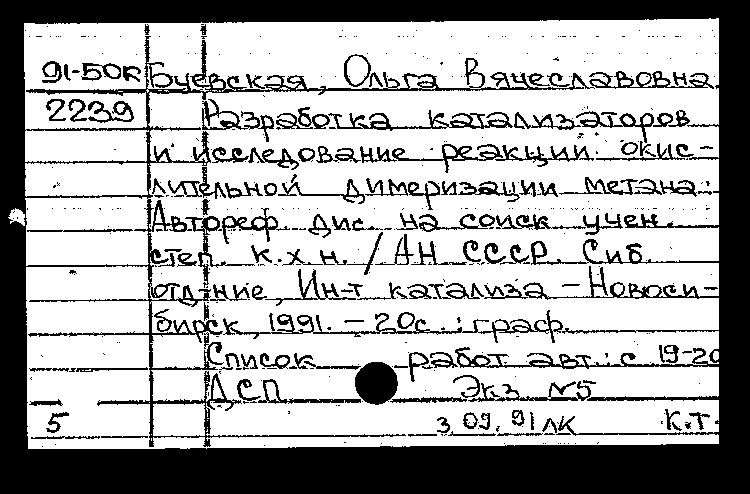 91-50к Буевская, Ольга Вячеславовна.
2239 Разработка катализаторов
и исследование реакции окис-
лительной димеризации метана:
Автореф. дис. на соиск учен.
степ. к.х.н. / АН СССР. Сиб.
отд-ние, Ин-т катализа – Новоси-
бирск, 1991. – 20с.: граф.
Список работ авт.: с 19-20
ДСП Экз №5
5 3.09.91 ЛК К.Т.